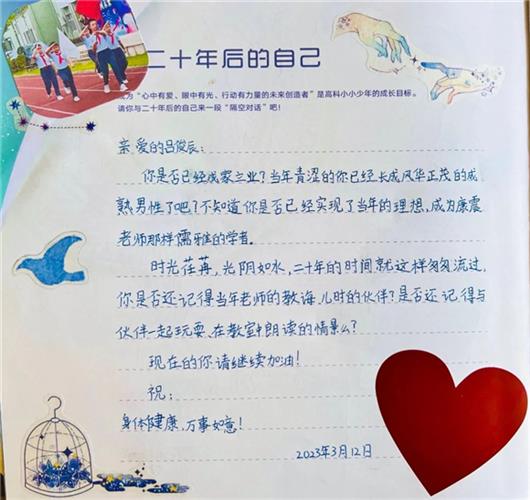 二十年后的自己
为“心中有爱、眼中有光、行动有力量的未来创造者”是高科小小少年的成长目标。
请你与二十年后的自己来一段“隔空对话”吧！
亲爱的吕俊辰：
你是否已经成家立业？当年青涩的你已经长成风华正茂的成
熟男性了吧？不知道你是否已经实现了当年的理想，成为康震
老师那样儒雅的学者。
时光荏苒，光阴如水，二十年的时间就这样匆匆流过，
你是否还记得当年老师的教诲，儿时的伙伴？是否还记得与
伙伴一起玩耍、在教室中朗读的情景么？
现在的你请继续加油！
祝：
身体健康，万事如意！
2023年3月12日